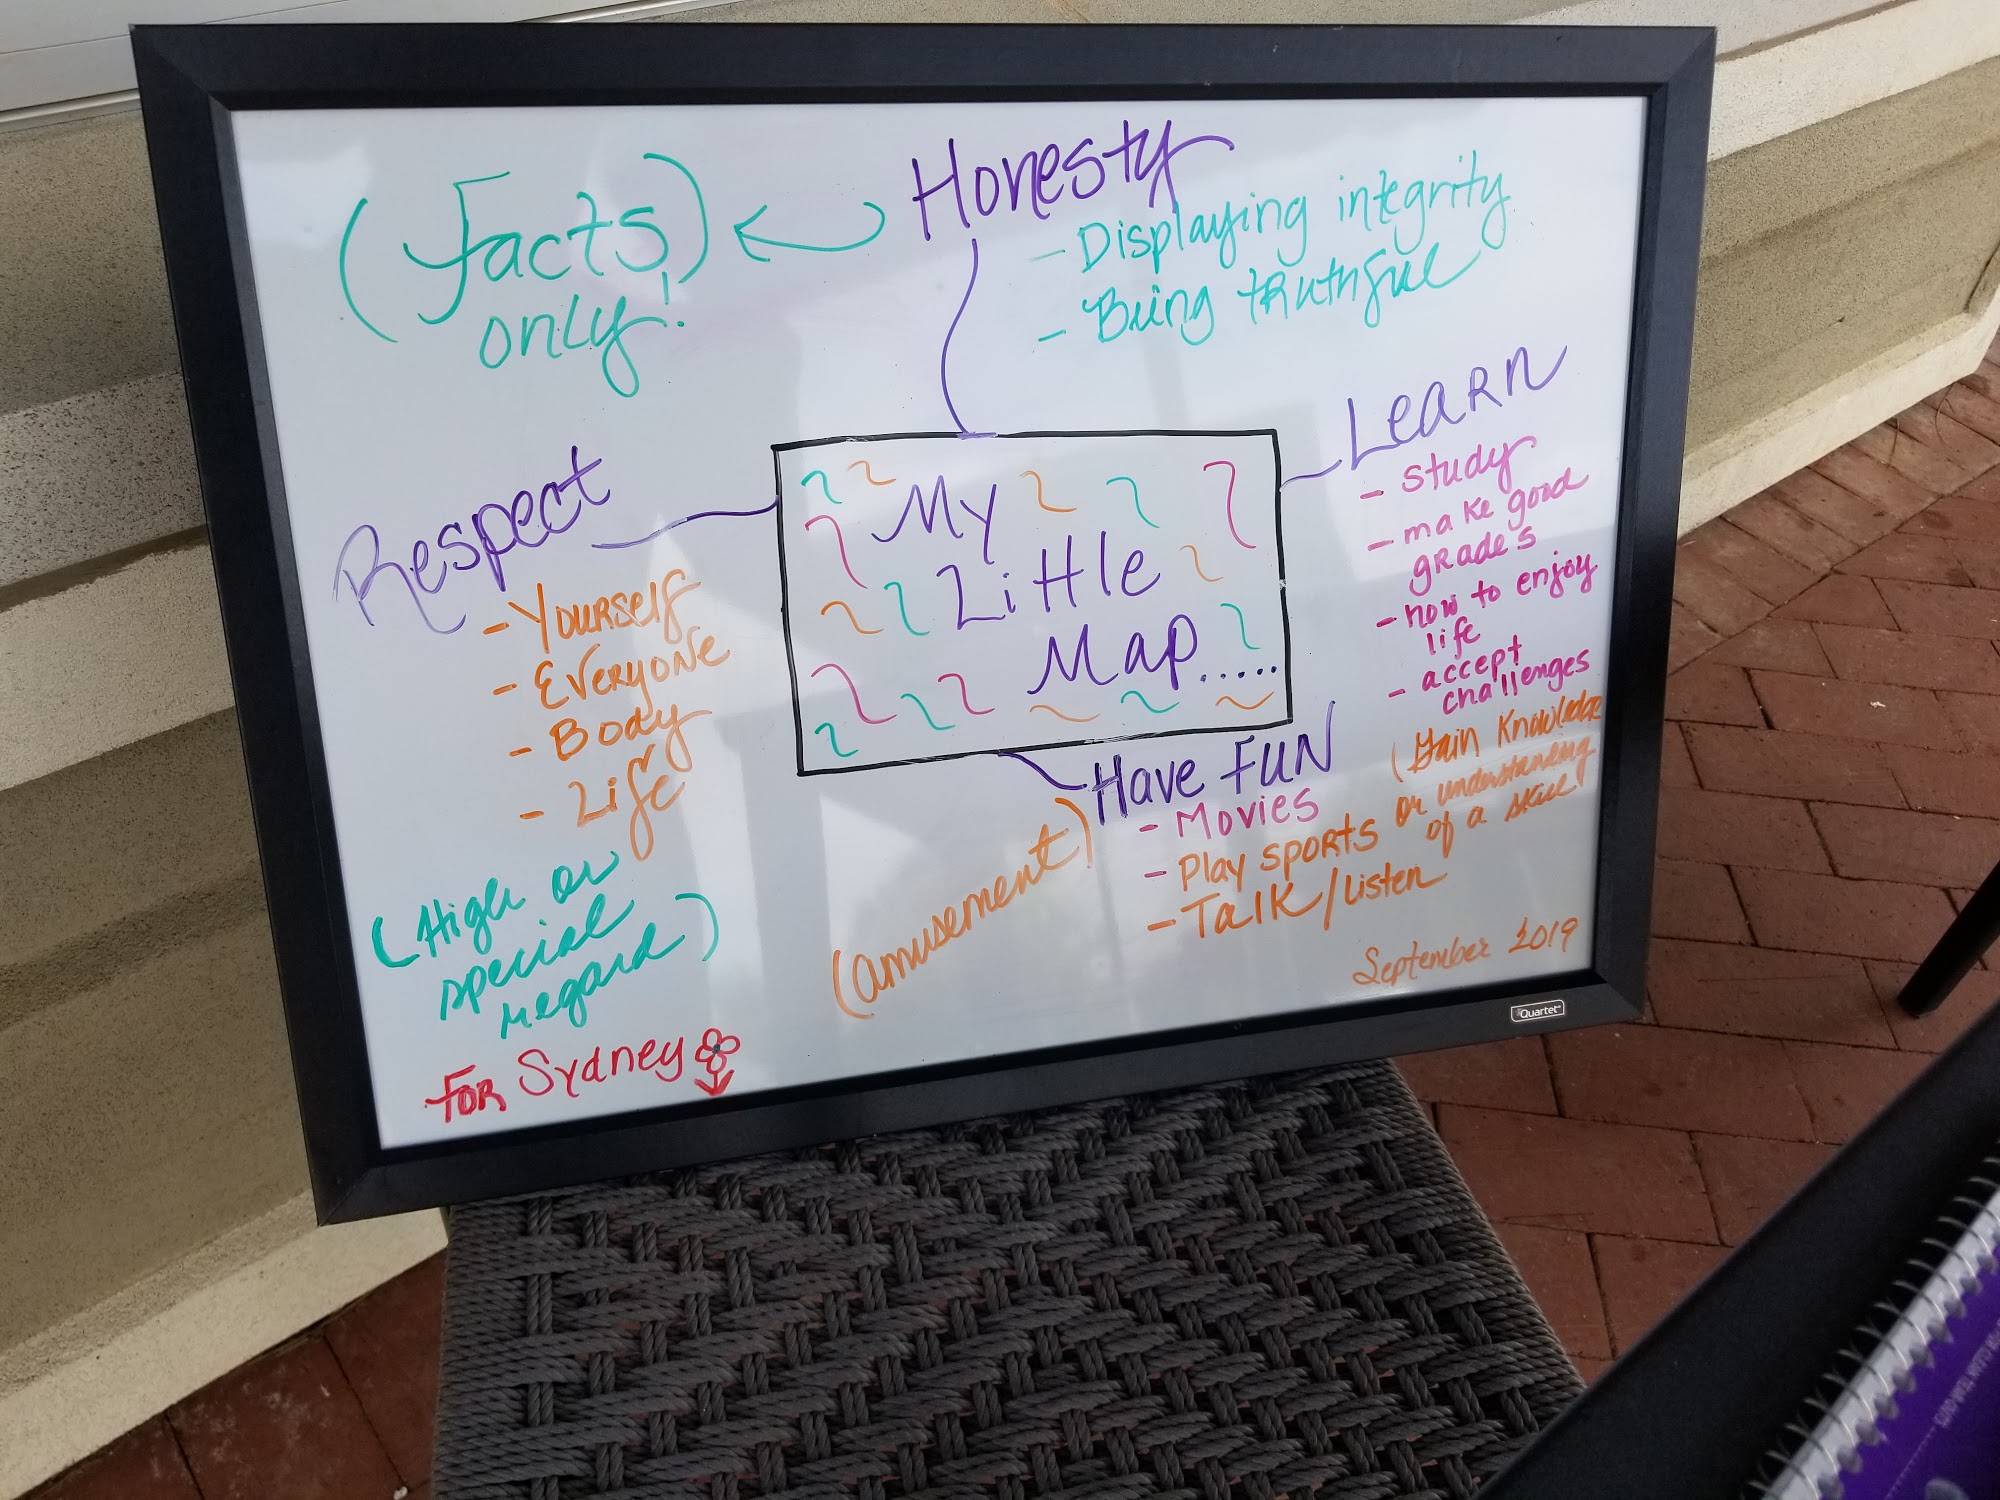 Honesty
- Displaying integrity
- Being truthful
(Facts
only!)
Respect
- Yourself
- Everyone
- Body
- Life
(High or
special
regard)
My
Little
Map.....
Learn
- study
- make good
grades
- how to enjoy
life
- accept
challenges
(Gain Knowledge
or understanding
of a skill)
Have FUN
- Movies
- Play sports
- Talk/Listen
(amusement)
September 2019
For Sydney
Quartet